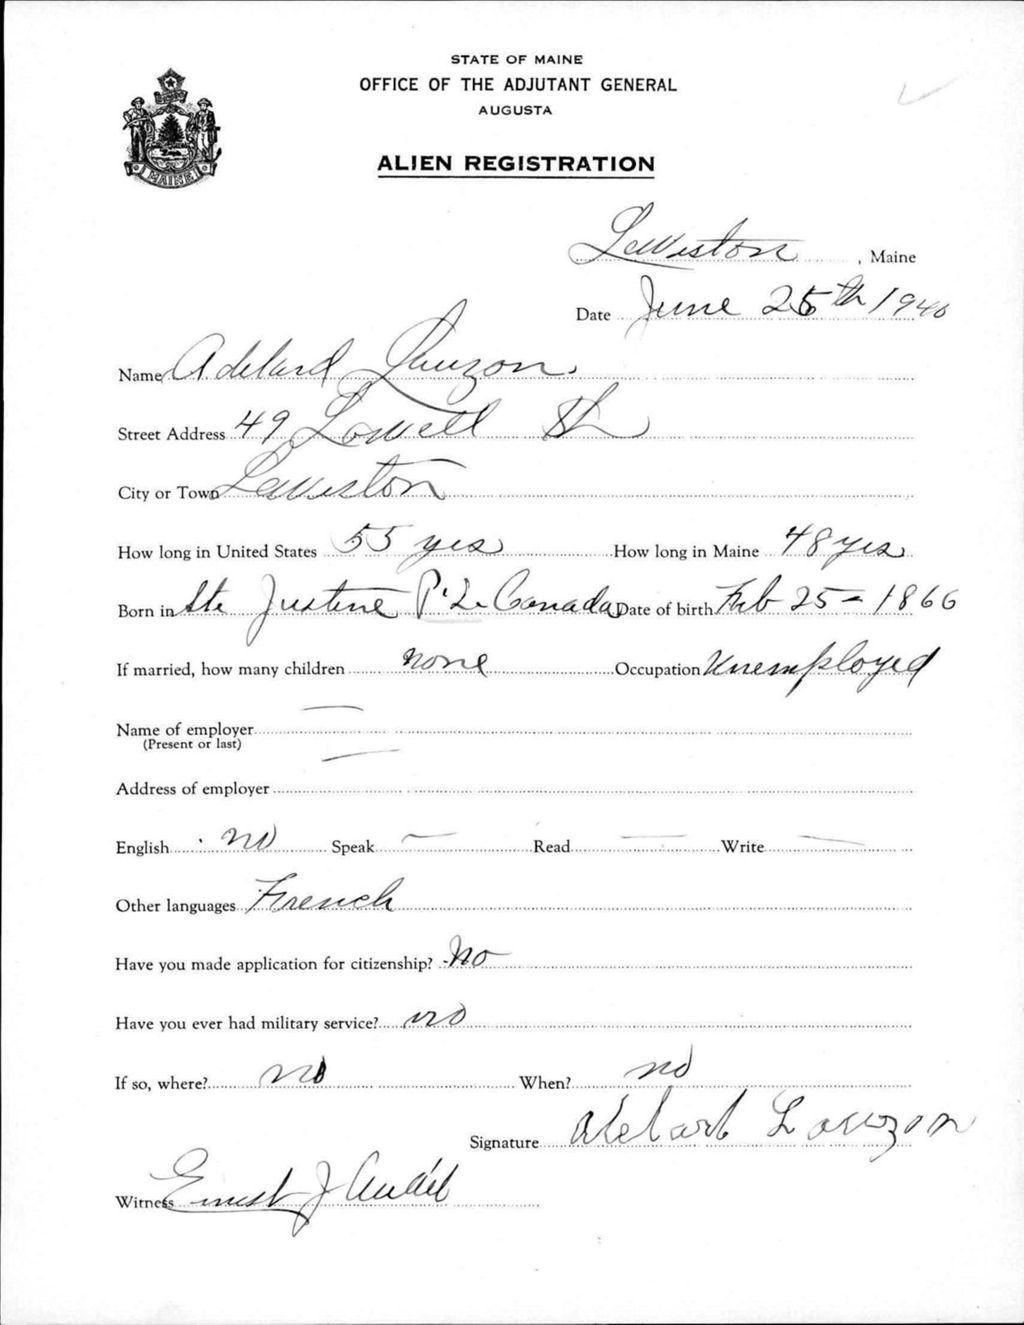 STATE OF MAINE
OFFICE OF THE ADJUTANT GENERAL
AUGUSTA
ALIEN REGISTRATION
MAINE
Lewiston, Maine
Date June 25th 1940
Name Adelard Lauzon.
Street Address 49 Lowell St
City or Town Lewiston
How long in United States 55 yrs How long in Maine 48 yrs
Born in Ste Justine P.Q. Canada Date of birth Feb 25 - 1866
If married, how many children none Occupation Unemployed
Name of employer —
(Present or last)
Address of employer —
English no Speak — Read — Write —
Other languages French
Have you made application for citizenship? No
Have you ever had military service? no
If so, where? no When? no
Signature Adelard Lauzon
Witness Ernest J